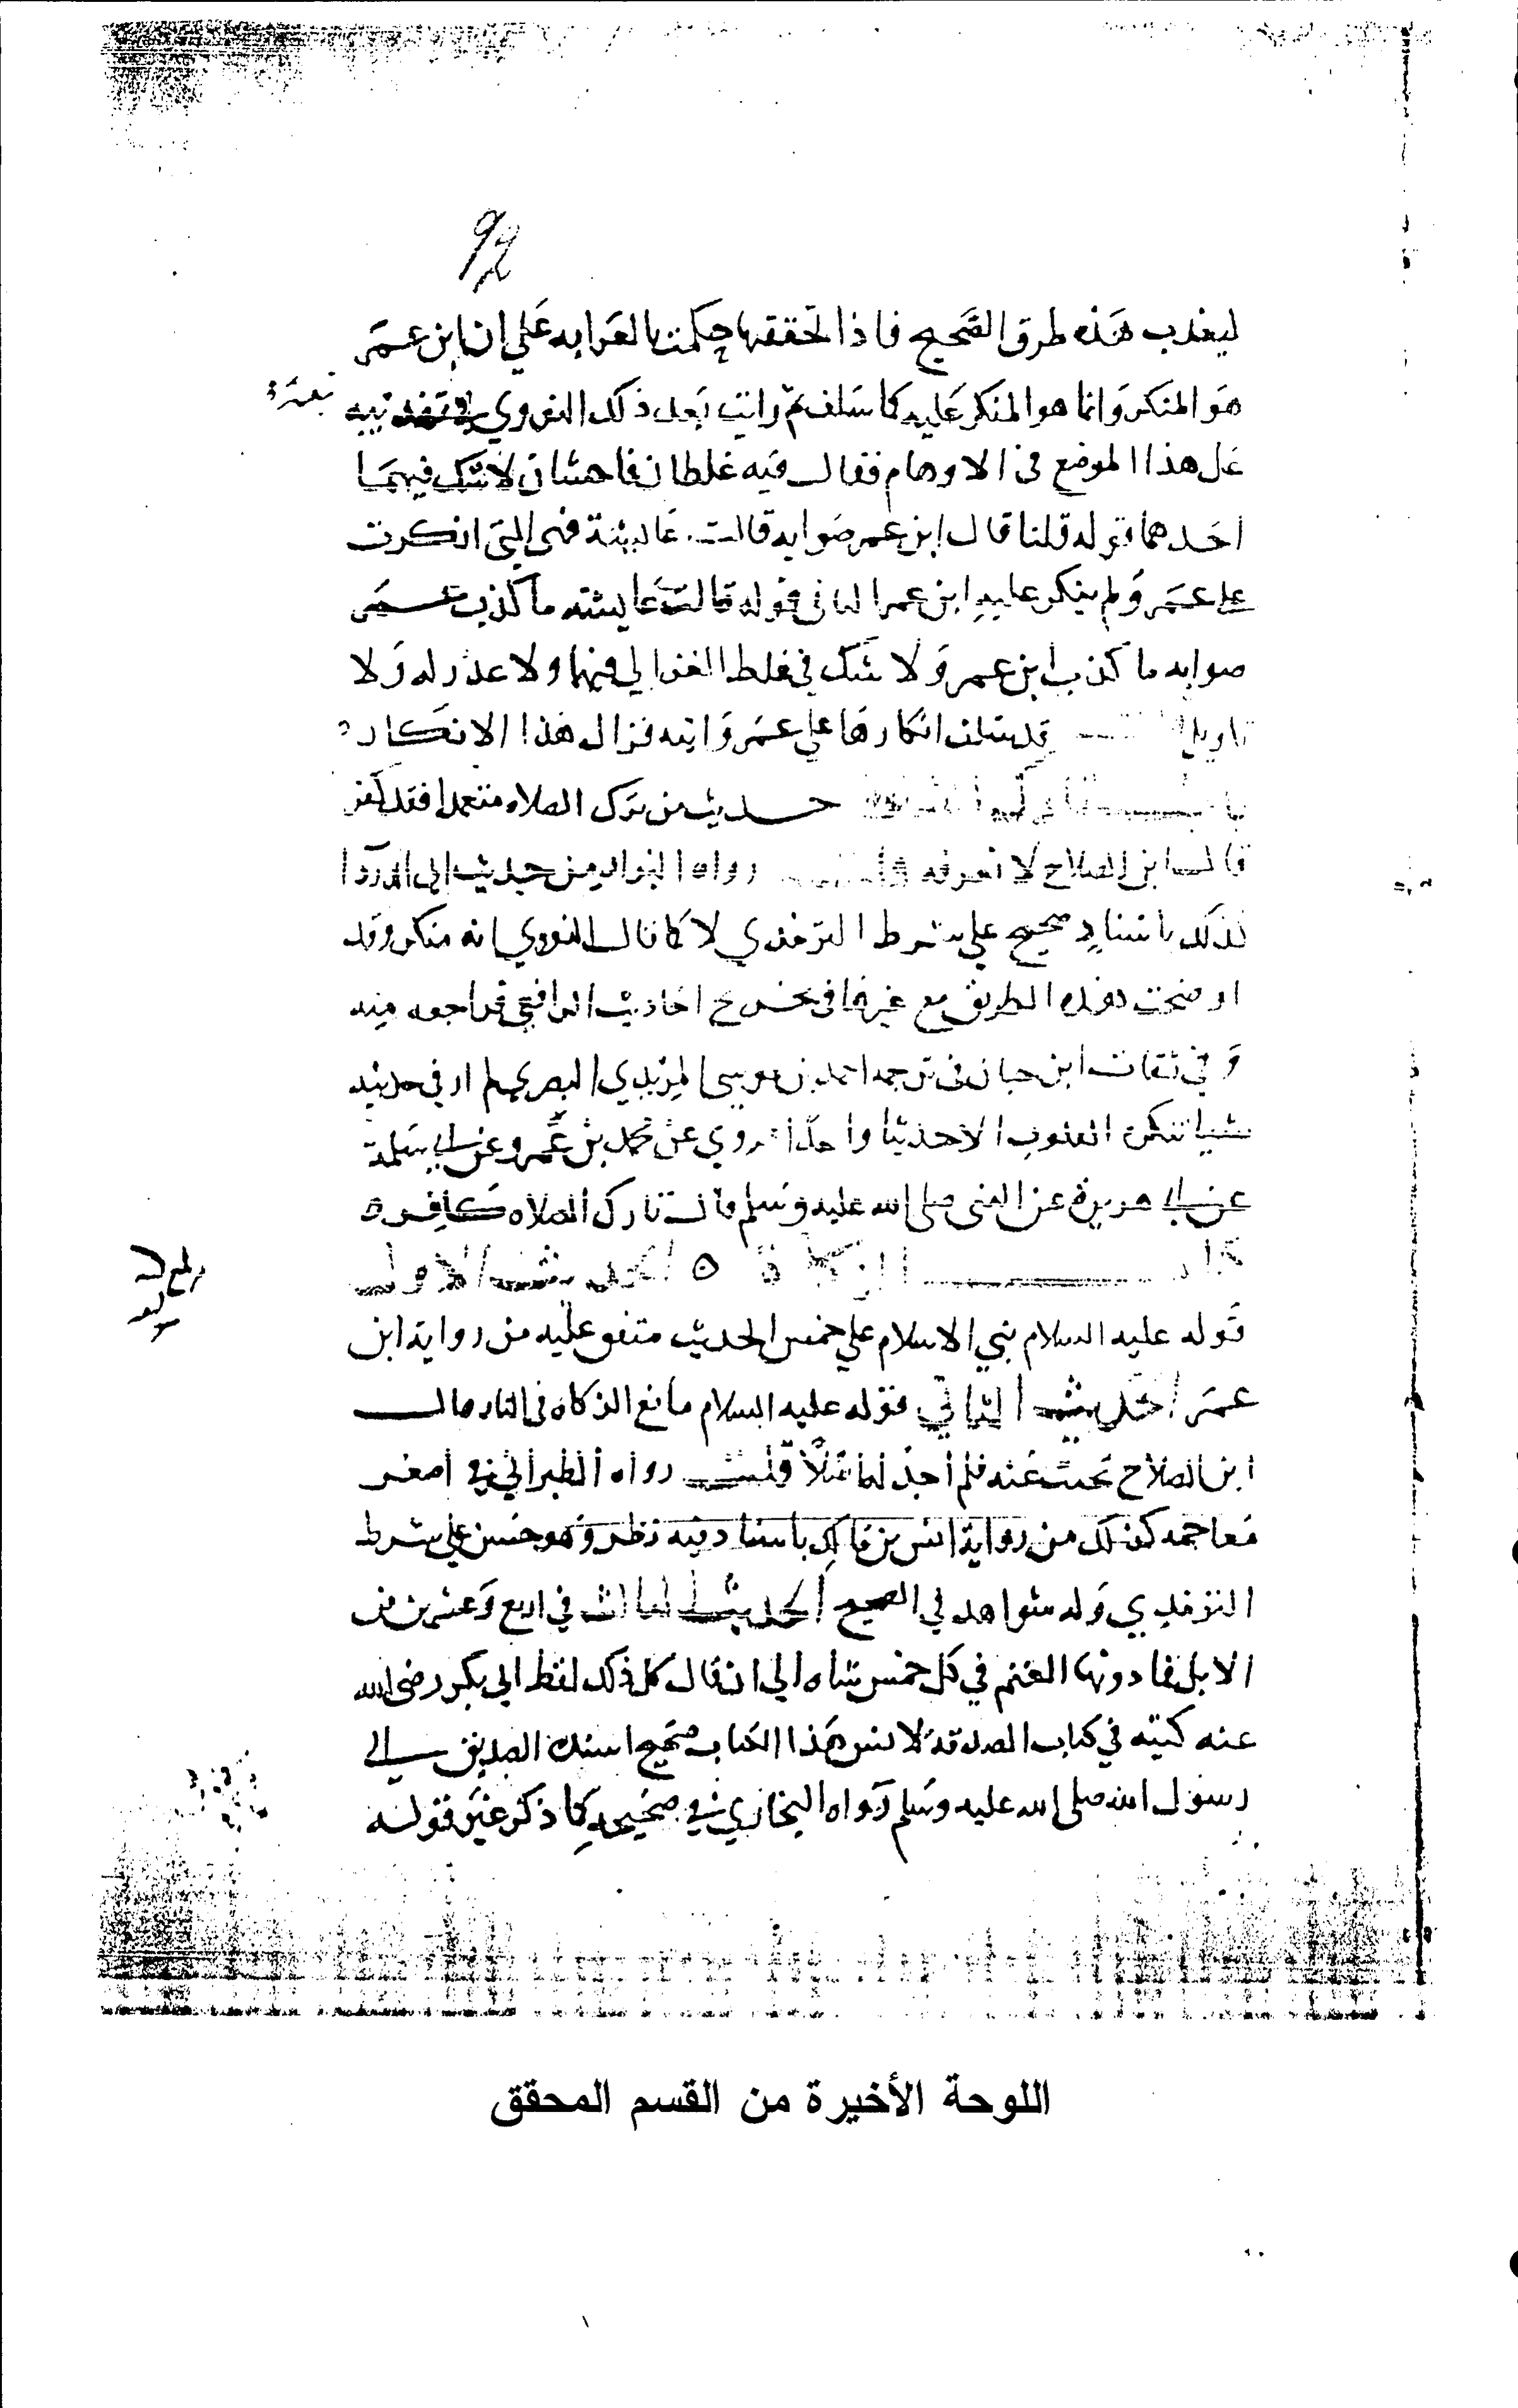 92
ليعذب هذه طرق الصحيح فاذا تحققتها حكمت بالغرابه علي ان ابن عمر
هو المنكر وانما هو المنكر عليه كما سلف ثم رايت بعد ذلك النووي في تهذيبه
عل هذا الموضع في الاوهام فقال فيه غلطان فاحشان لا شك فيهما
احدهما قوله قلنا قال ابن عمر صوابه قالت عايشة فهي التي انكرت
علي عمر ولم ينكر عليه ابن عمر الثاني قوله قالت عايشه ما كذب عمر
صوابه ما كذب ابن عمر ولا شك في غلط الغزالي فيهما ولا عذر له ولا
تاويل قد سلف انكارها علي عمر وابنه فزال هذا الانكار
باب تارك حديث من ترك الصلاه متعمدا فقد كفر
قال ابن الصلاح لا نعرفه قلت رواه البزار من حديث ابي الدردا
كذلك باسناد صحيح علي شرط الترمذي لا كما قال النووي انه منكر وقد
اوضحت هذه الطريق مع غيرها في تخريج احاديث الرافعي فراجعه منه
وفي ثقات ابن حبان في ترجمه احمد بن موسي البصري لم ار في حديثه
شيا تنكره القلوب الا حديثا واحدا روي عن محمد بن عمرو عن ابي سلمة
عن ابي هريرة عن النبي صلى الله عليه وسلم قال تارك الصلاه كافر ه
كتاب الزكاة ه الحديث الاول
قوله عليه السلام بني الاسلام علي خمس الحديث متفق عليه من رواية ابن
عمر الحديث الثاني قوله عليه السلام مانع الزكاه في النار قال
ابن الصلاح بحثت عنه فلم اجد له اصلا قلت رواه الطبراني في اصغر
معاجمه كذلك من رواية انس بن مالك باسناد فيه نظر وهو حسن علي شرط
الترمذي وله شواهد في الصحيح الحديث الثالث في اربع وعشرين من
الابل فما دونها الغنم في كل خمس شاه الي ان قال كل ذلك لفظ ابي بكر رضى الله
عنه كتبه في كتاب الصدقة لانس هذا الكتاب صحيح اسنده الصديق الي
رسول الله صلى الله عليه وسلم رواه البخاري في صحيحه كما ذكر غير قوله
اللوحة الأخيرة من القسم المحقق